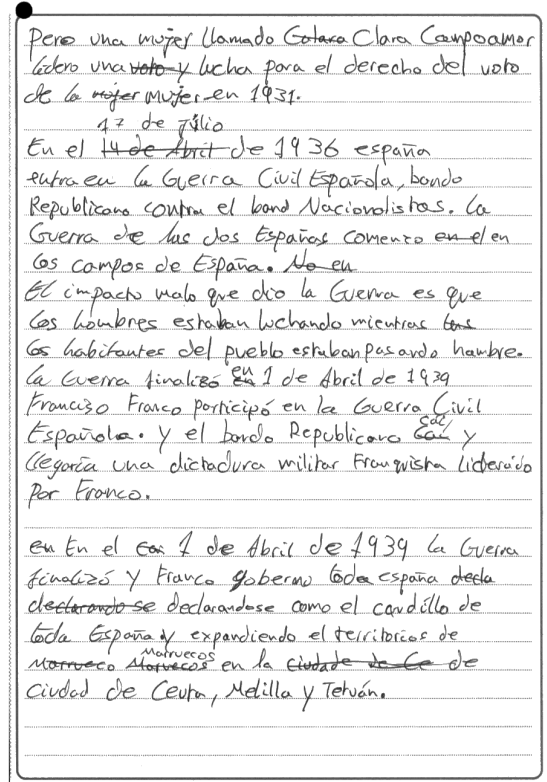 Pero una mujer llamado Clara Campoamor
lidero una voto y lucha para el derecho del voto
de la mujer mujer en 1931.
17 de Julio
En el 14 de Abril de 1936 españa
entra en la Guerra Civil Española, bando
Republicano contra el band Nacionalistas. La
Guerra de las dos Españas comenzo en el en
los campos de España. No en
El impacto malo que dio la Guerra es que
los hombres estaban luchando mientras
los habitantes del pueblo estaban pasando hambre.
La Guerra finalizó en 1 de Abril de 1939
Francisco Franco participó en la Guerra Civil
Española. y el bando Republicano cai y
llegaria una dictadura militar Franquista liderado
Por Franco.
en En el 1 de Abril de 1939 la Guerra
finalizó y Franco goberno toda españa decla
declarando se declarandose como el caudillo de
toda España y expandiendo el territorios de
Marruecos
Marrueco Marruecos en la ciudade de Ce de
Ciudad de Ceuta, Melilla y Tetuán.